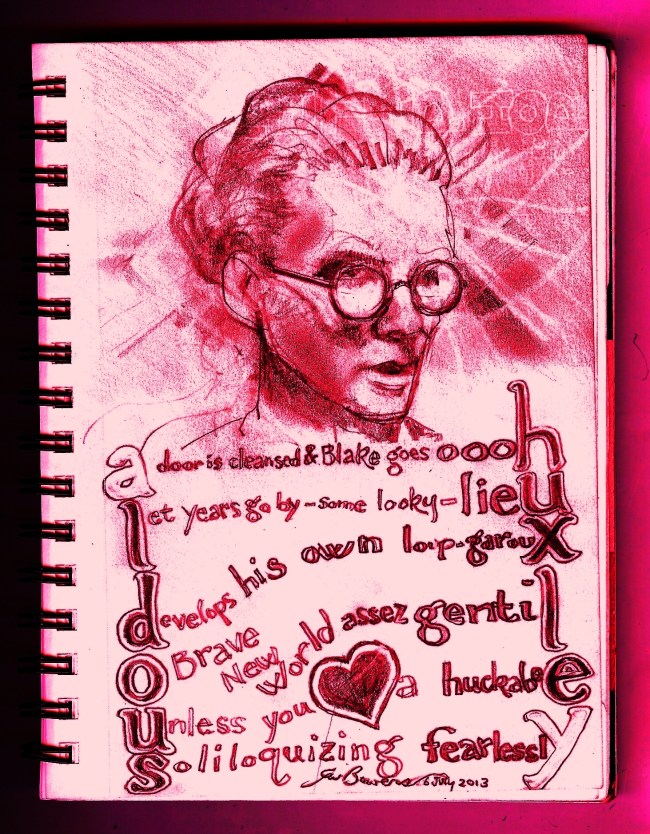 a door is cleansed & Blake goes oooh
let years go by - some looky-lieu
develops his own loup-garoux
o Brave New World assez gentil
unless you a
soliloquizing fearlessly
6 July 2013